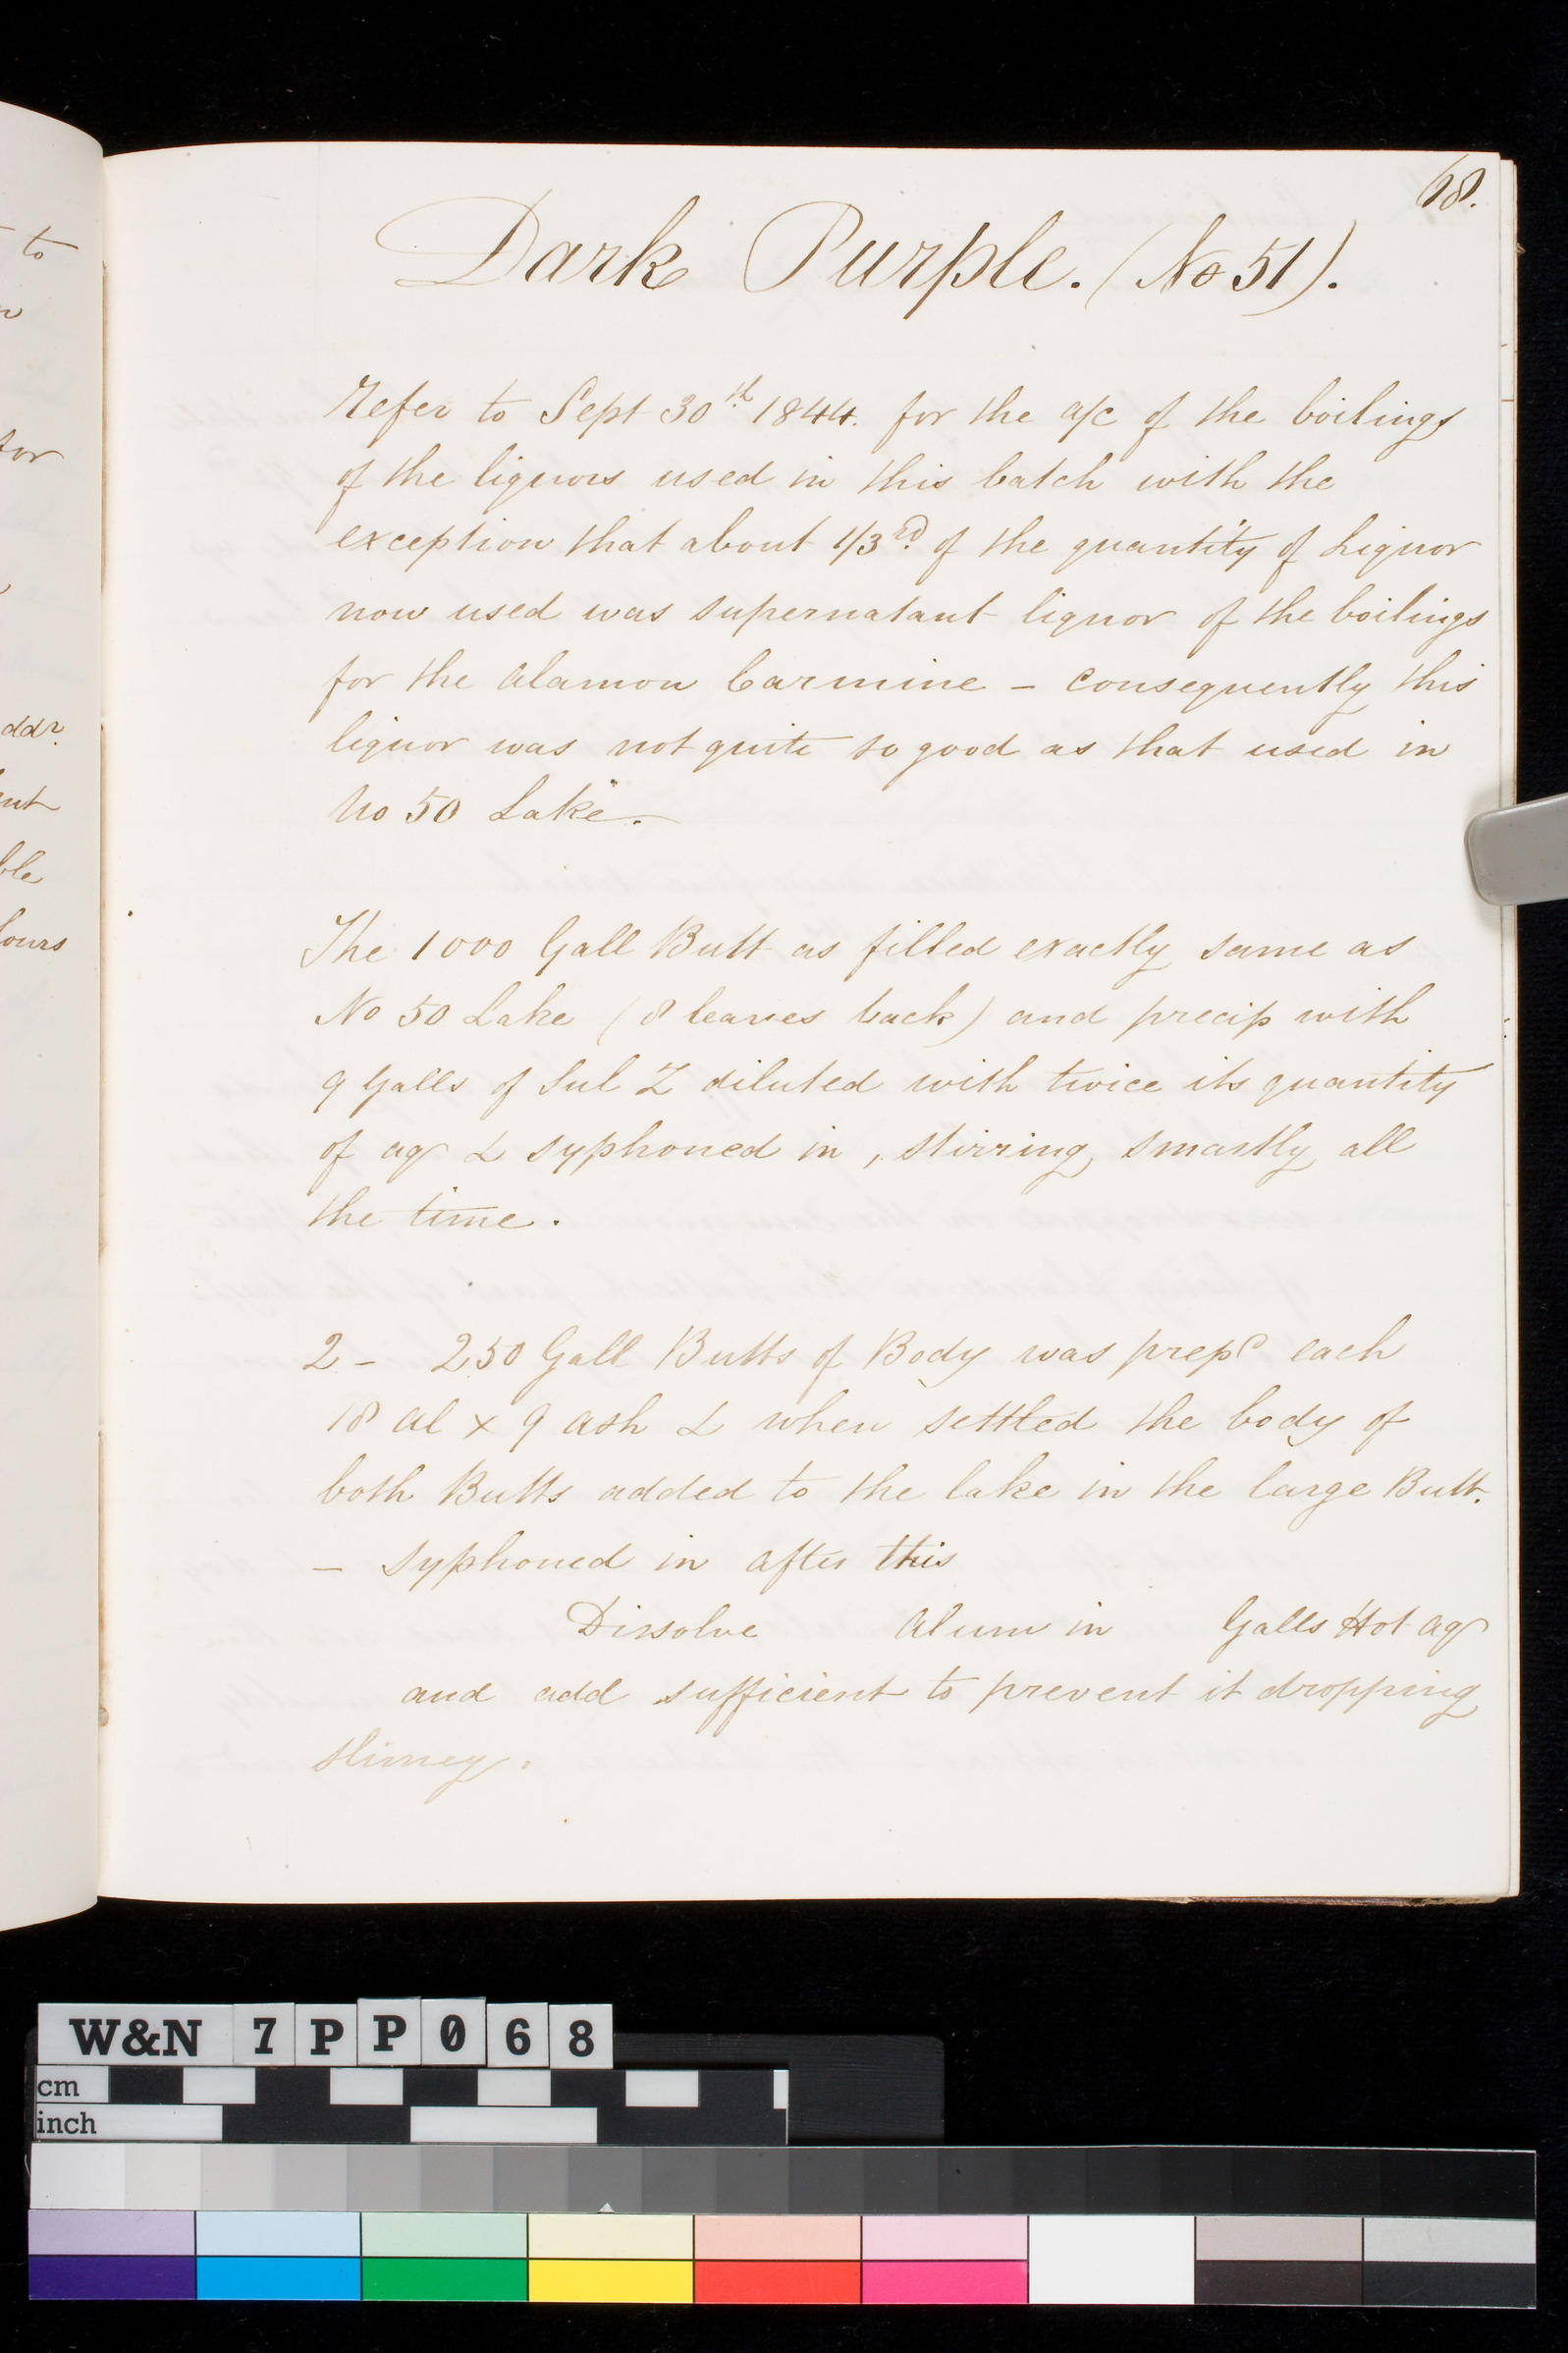 to
for
addr
ent
ble
lours
68.
Dark Purple. (No 51).
Refer to Sept 30th 1844. for the a/c of the boilings
of the liquors used in this batch with the
exception that about 1/3rd of the quantity of Liquor
now used was supernatant liquor of the boilings
for the Alamon Carmine - consequently this
liquor was not quite so good as that used in
No 50 Lake.
The 1000 Gall Butt as filled exactly same as
No 50 Lake (8 leaves back) and precip with
9 Galls of Sul Z diluted with twice its quantity
of aq & syphoned in, stirring smartly all
the time.
2 - 250 Gall Butts of Body was prepd each
18 Al x 9 ash & when settled the body of
both Butts added to the lake in the large Butt.
- syphoned in after this
Dissolve Alum in Galls Hot aq
and add sufficient to prevent it dropping
slimey.
W&N 7PP068
cm
inch